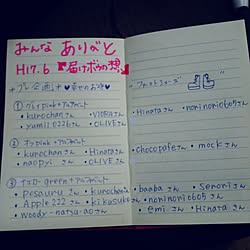 みんな ありがと
H17.6 届けボクの想
+プレ企画+ ♥幸せのお裾♥
① グレイpink+アルファベット
・kurochanさん ・VIORAさん
・yumii0226さん ・OLIVEさん
② オフpink+アルファベット
・kurochanさん ・Hinataさん
・naopyiさん ・OLIVEさん
③ イエローgreen+アルファベット
・pesauruさん ・kurochanさん
・Apple222さん ・kikusukeさん
・woody-natsu-aoさん
"ファーストシューズ"
・Hinataさん ・norinorino605さん
・chocopafeさん ・mockさん
・baabaさん ・Senoriさん
・norinorino605さん
・emiさん ・Hinataさん